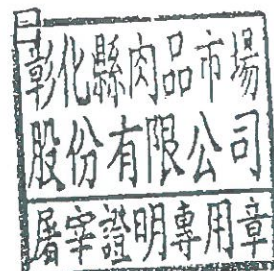 日
彰化縣肉品市場
股份有限公司
屠宰證明專用章